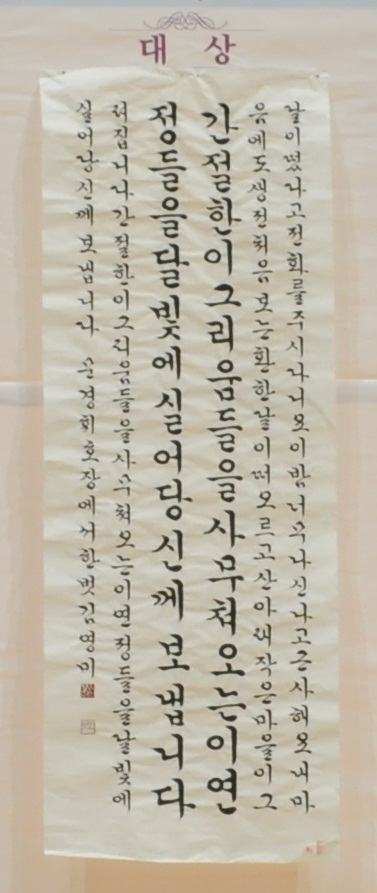 대 상
달이떴다고전화를주시다니요이밤너무나신나고근사해요내마
음에도생전처음보는환한달이떠오르고산아래작은마을이그
간절한이그리움들을사무쳐오는이연
정들을달빛에실어당신께보냅니다
려집니다간절한이그리움들을사무쳐오는이연정들을달빛에
실어당신께보냅니다 운경휘호장에서한벗김영미